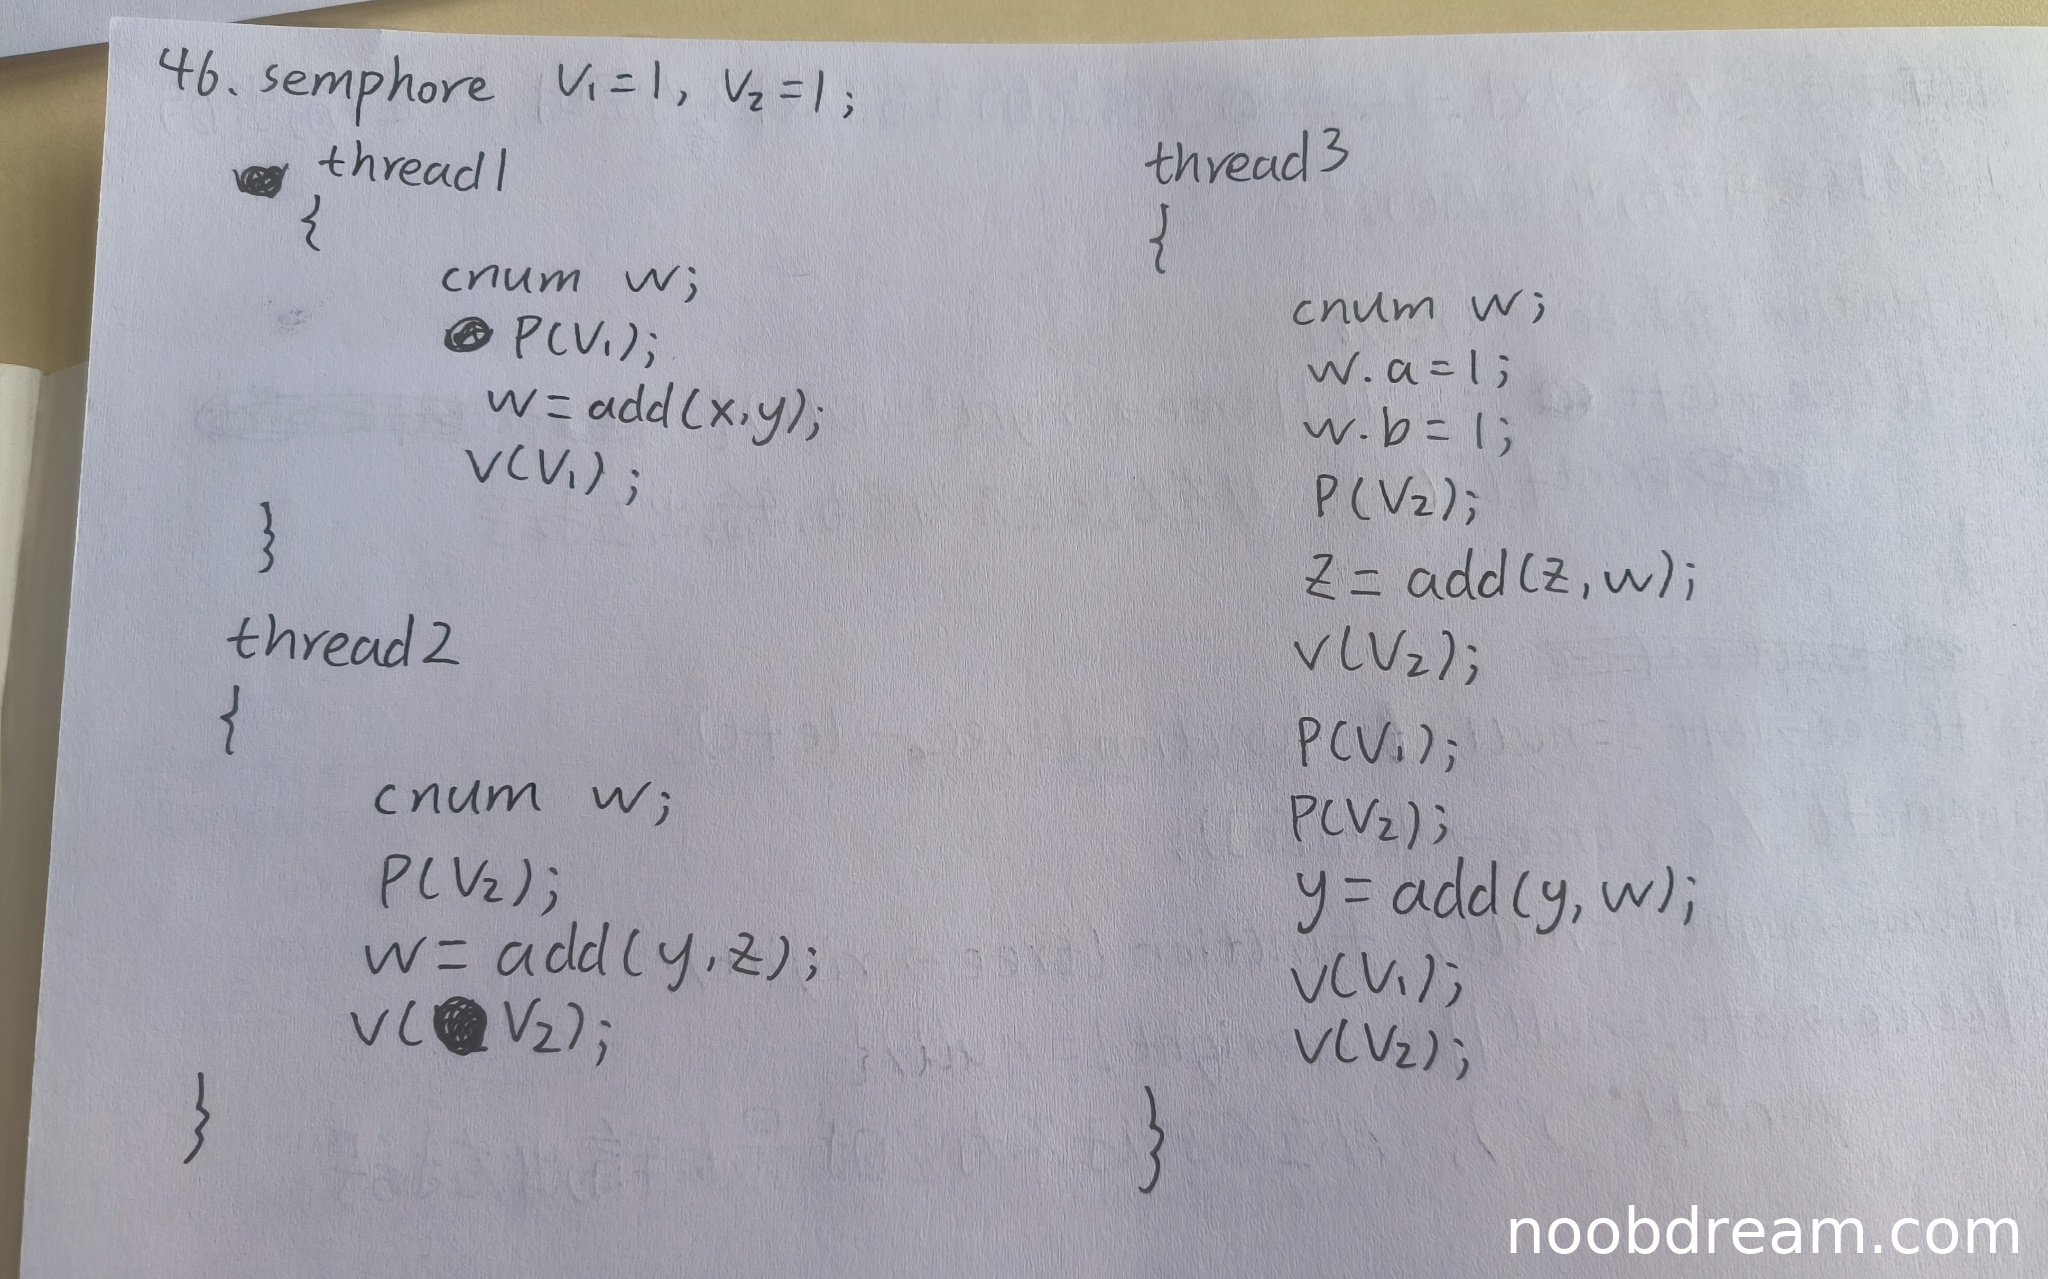 46. semphore V₁=1, V₂=1;
thread1
{
cnum w;
P(V₁);
w=add(x,y);
V(V₁);
}
thread2
{
cnum w;
P(V₂);
w=add(y,z);
V(V₂);
}
thread3
{
cnum w;
w.a=1;
w.b=1;
P(V₂);
z=add(z,w);
V(V₂);
P(V₁);
P(V₂);
y=add(y,w);
V(V₁);
V(V₂);
}
noobdream.com